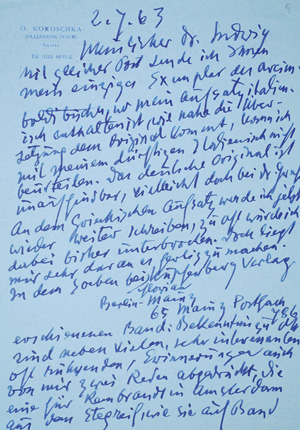 O. KOKOSCHKA
VILLENEUVE (VAUD)
2.7.63
Dr. Ludwig
mit gleicher Post sende ich Ihnen
mein einziges Exemplar des Arcim-
boldi buches, wo mein Aufsatz italien-
isch enthalten ist wie nahe die Über-
setzung dem Original kommt, kann ich
mit meinem dürftigen Italienisch nicht
beurteilen. Das deutsche Original ist
unauffindbar, vielleicht doch bei
An dem Griechischen Aufsatz werde ich jetzt
wieder weiter schreiben, zu oft wurde ich
dabei bisher unterbrochen. Doch liegt
mir sehr daran es fertig zu machen.
In dem soeben bei Kupferberg Verlag
Florian
Berlin-Mainz
65 Mainz Postfach
erschienenen Band: Bekenntnis zu
sind neben vielen, sehr interessanten
oft rührenden, Erinnerungen auch
von mir zwei Reden abgedruckt, die
eine für Rembrandt in Amsterdam
aus dem Stegreif wie sie auf Band